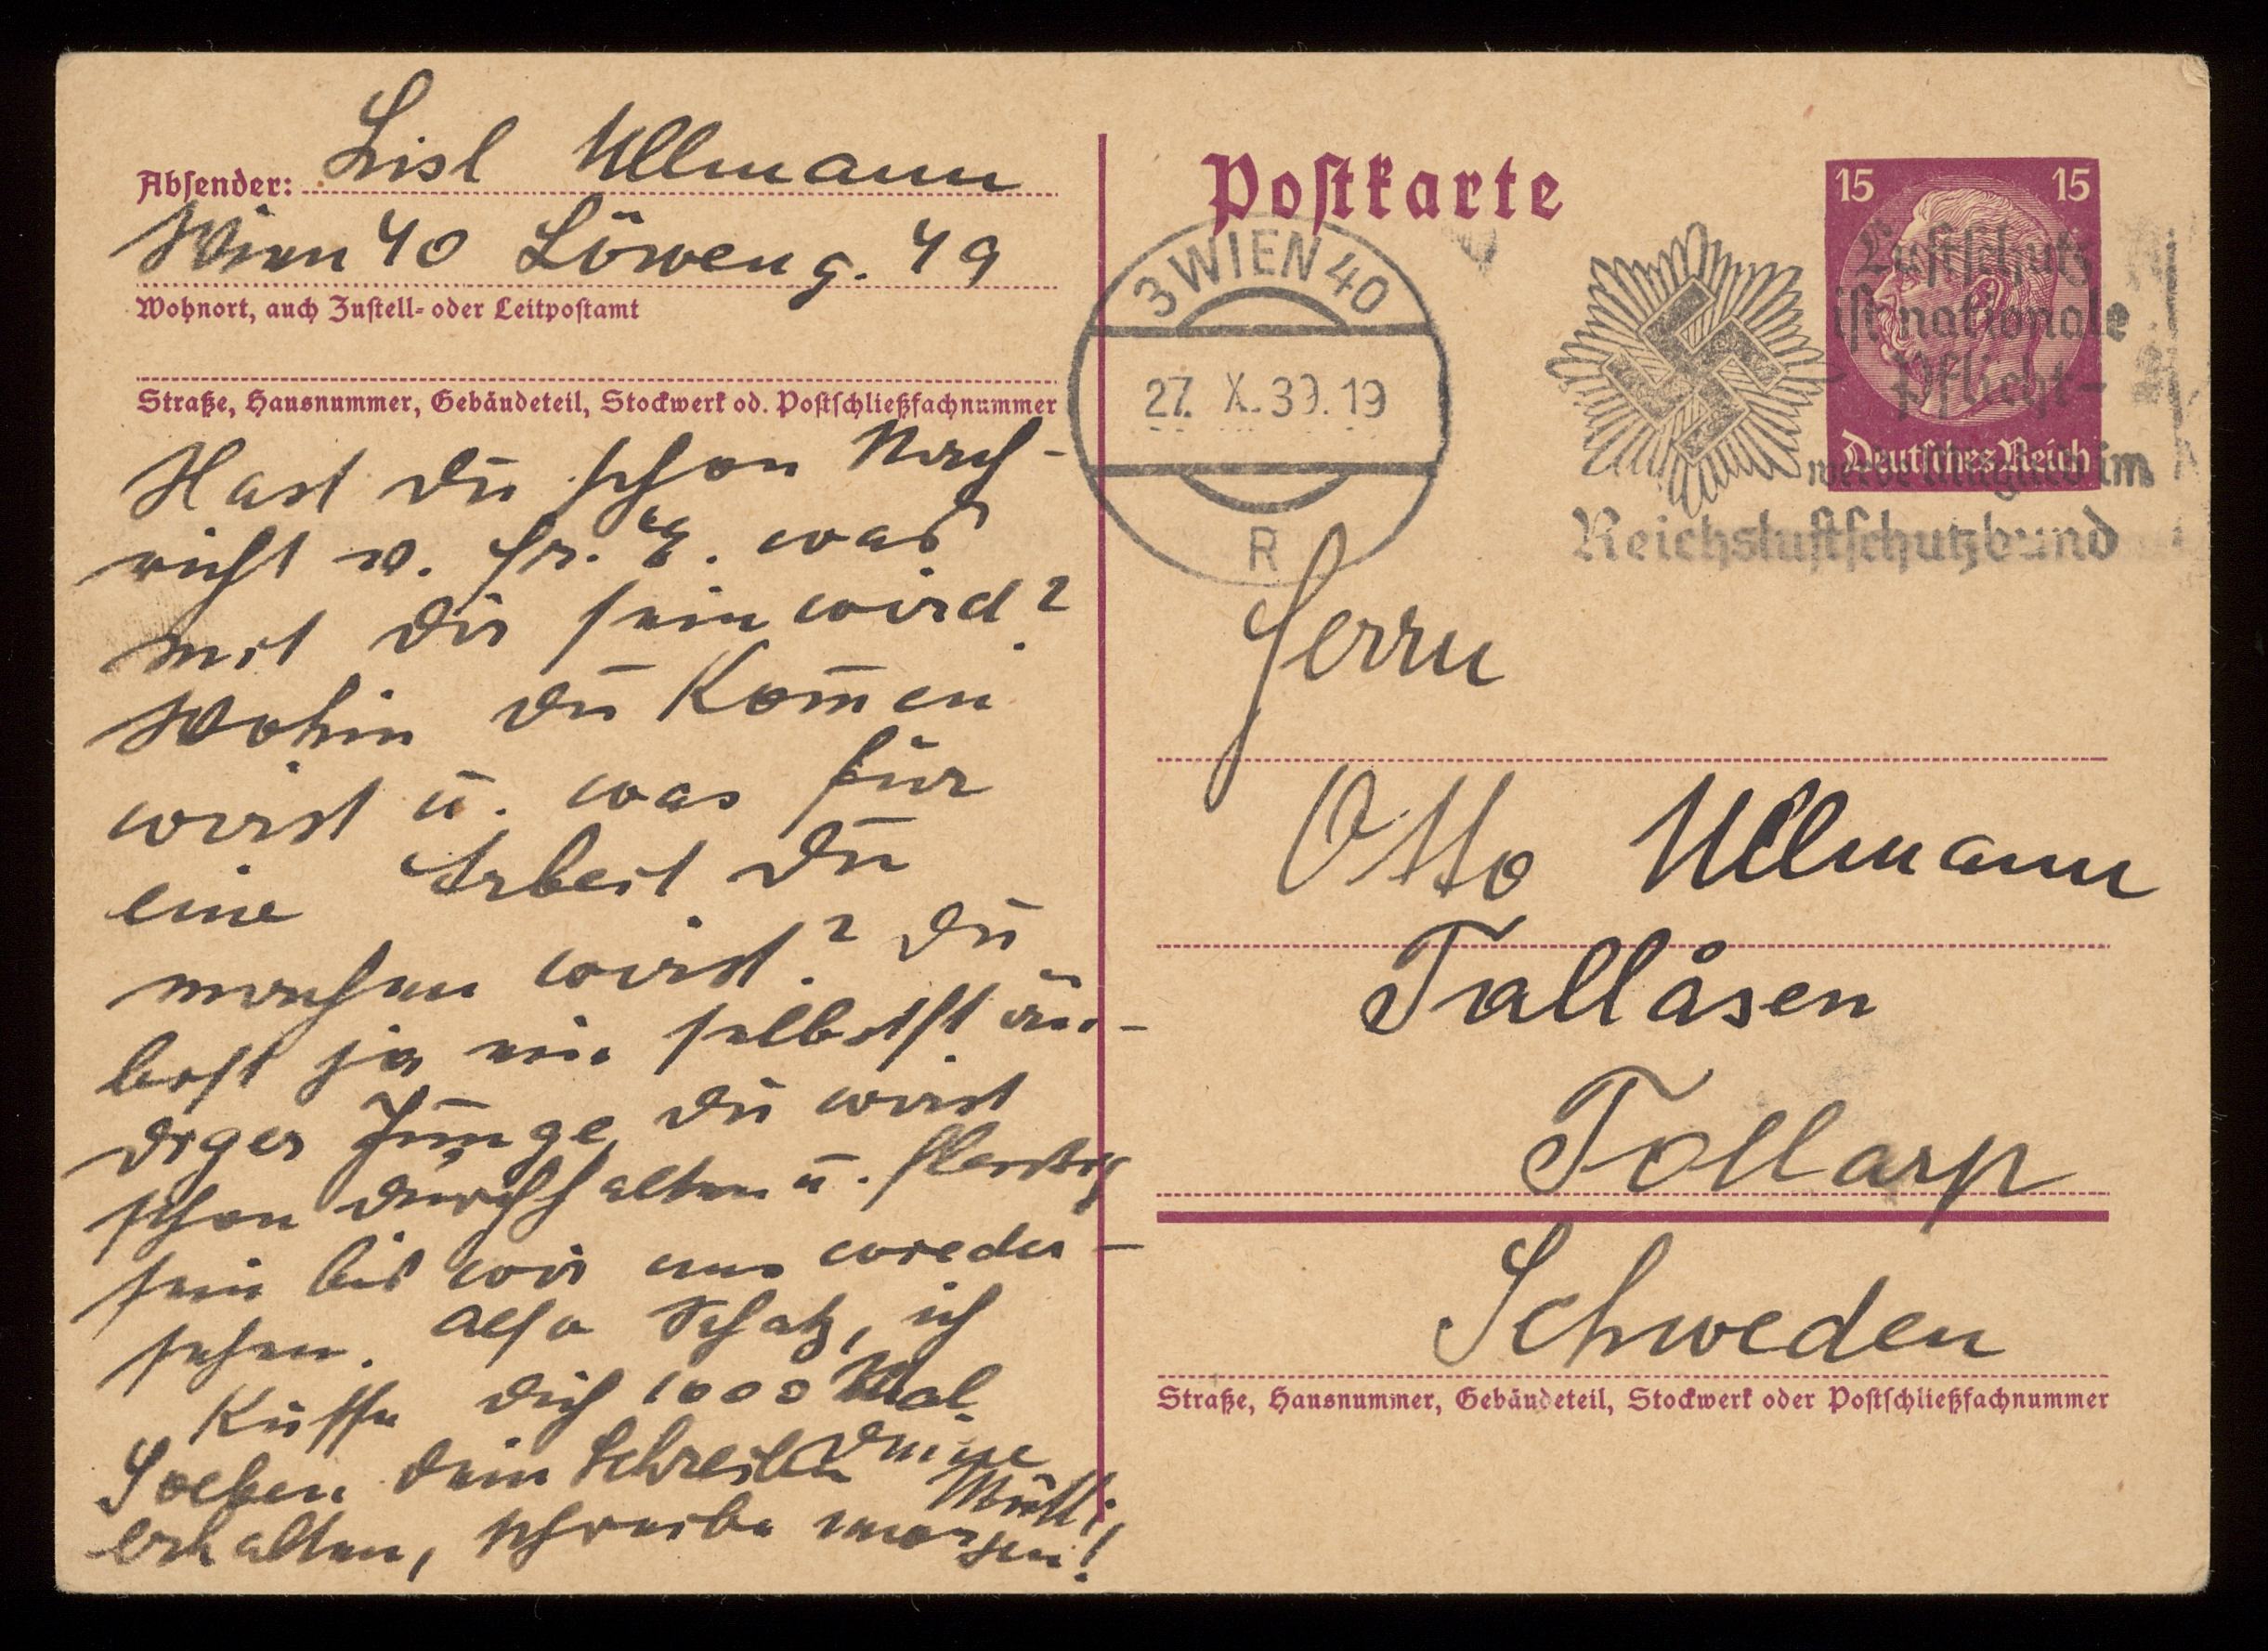 Absender: Lisl Ullmann
Wien 40 Löweng. 49
Wohnort, auch Zustell- oder Leitpostamt
Straße, Hausnummer, Gebäudeteil, Stockwerk od. Postschließfachnummer
Hast du schon Nach-
richt v. Fr. E. was
mit dir sein wird?
Wohin du Kom̄en
wirst u. was für
eine Arbeit du
machen wirst? Du
bist ja ein selbstst än-
diger Junge, du wirst
schon durchhalten u. fleissig
sein bis wir uns wieder-
sehen. Also Schatz, ich
Küsse dich 1000 Mal.
Deine
Mutti,
Soeben dein Schreiben
erhalten, schreibe morgen!
Postkarte
3 WIEN 40
27. X. 39. 19
R
15 15
Deutsches Reich
Luftschutz
ist nationale
Pflicht-
werde Mitglied im
Reichsluftschutzbund
Herrn
Otto Ullmann
Tallåsen
Tollarp
Schweden
Straße, Hausnummer, Gebäudeteil, Stockwerk oder Postschließfachnummer